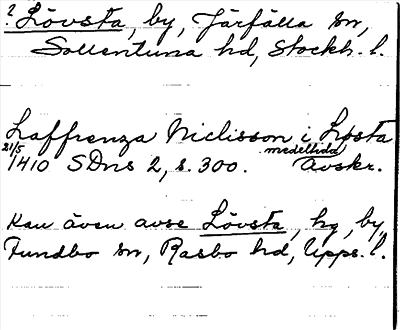 ? Lövsta, by, Järfälla sn,
Sollentuna hd, Stockh. l.
Laffrenza Niclisson i Løsta
21/5 1410 SDns 2, s. 300. medeltida avskr.
Kan även avse Lövsta, hg, by,
Fundbo sn, Rasbo hd, Upps. l.